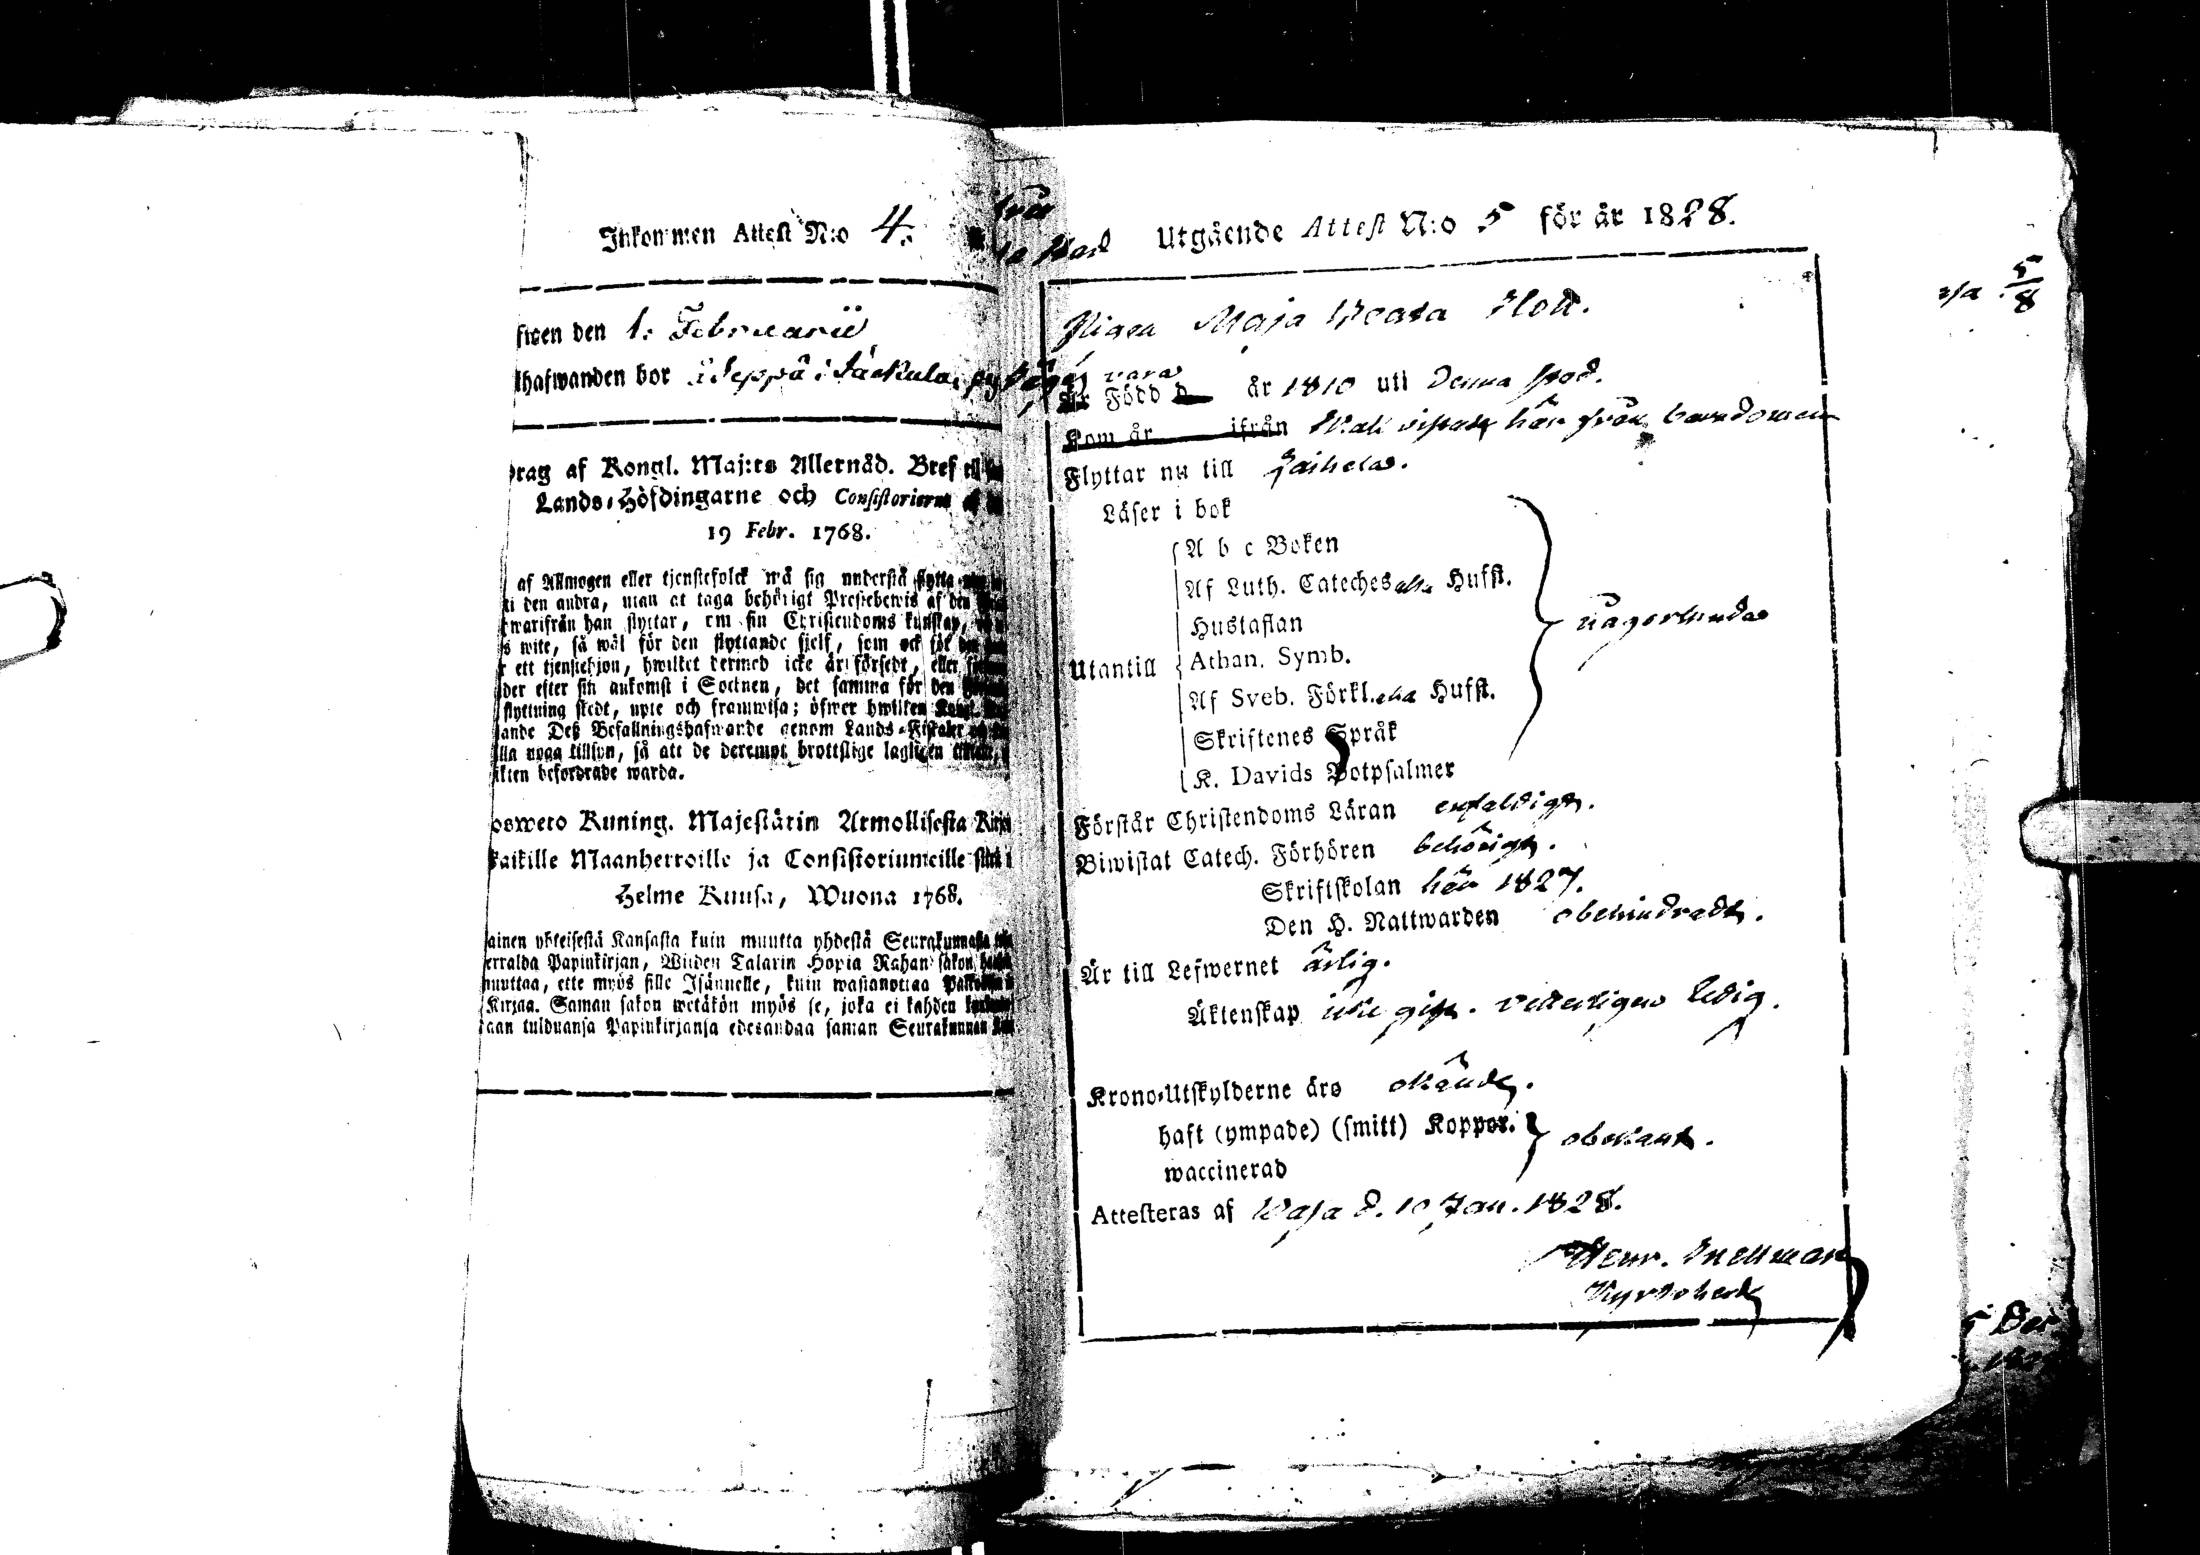 Inkommen Attest N:o 4.
ften den 1. Februarii
lhafwanden bor i Seppä i Jäckula
drag af Kongl. Maj:ts Allernåd. Bref till
Lands-Höfdingarne och Consistorierne af
19 Febr. 1768.
af Allmogen eller tjenstefolck må sig understå flytta
ti den andra, utan at taga behörigt Prestebewis af den
hwarifrån han flyttar, om sin Christendoms kunskap,
s wite, så wäl för den flyttande sjelf, som ock för den
r ett tjenstehjon, hwilket dermed icke är försedt, eller
der efter sin ankomst i Socknen, det samma för den
flyttning skedt, upte och framwisa; öfwer hwilken Kongl.
ande Deß Befallningshafwande genom Lands-Fiskaler
lla noga tillsyn, så att de deremot brottslige lagligen tiltalte,
kten befordrade warda.
oswero Kuning. Majestätin Armollisesta Kirje
kaikille Maanherroille ja Consistoriumeille
Helme Kuusa, Wuona 1768.
ainen yhteisestä Kansasta kuin muutta yhdestä Seurakunnasta
erralda Papinkirjan, Wiiden Talarin Hopia Rahan sakon
muuttaa, ette myös sille Isännelle, kuin wastanottaa
Kirjaa. Saman sakon wetäkön myös se, joka ei kahden
aan tulduansa Papinkirjansa edesandaa saman Seurakunnan
Utgående Attest N:o 5 för år 1828.
Pigan Maja Holt.
wara
Är Född år 1810 uti denna stad.
Kom år ifrån Wall vistats här från barndomen
Flyttar nu till Jaihela.
Läser i bok
A b c Boken
Af Luth. Cateches utan Hufst.
Hustaflan
Utantill Athan. Symb. någorlunda
Af Sveb. Förkl. utan Hufst.
Skriftenes Språk
K. Davids Botpsalmer
Förstår Christendoms Läran enfaldigt.
Biwistat Catech. Förhören behörigt.
Skriftskolan här 1827.
Den H. Nattwarden obehindradt.
Är till Lefwernet ärlig.
Äktenskap icke gift. veterligen ledig.
Krono-Utskylderne äro okände.
haft (ympade) (smitt) Koppor. obekant.
waccinerad
Attesteras af Wasa d. 10 Jan. 1828.
Henr. Snellman
Kyrkoherde
5/8
5 Dec